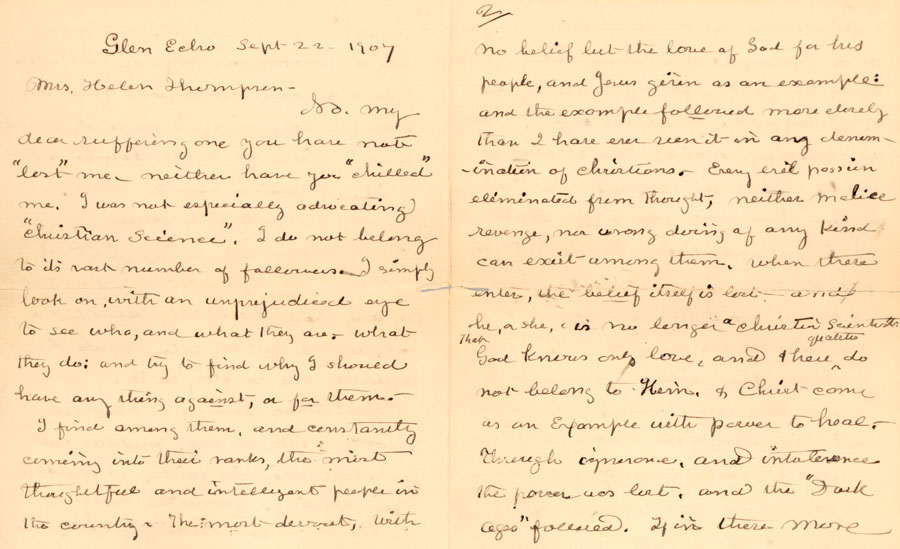 Glen Echo Sept 22 - 1907
Mrs. Helen Thompson -
No. my
dear suffering one you have not
"lost" me - neither have you "chilled"
me. I was not especially advocating
"Christian Science". I do not belong
to its vast number of followers. I simply
look on, with an unprejudiced eye
to see who, and what they are - what
they do: and try to find why I should
have any thing against, or for them. -
I find among them, and constantly
coming into their ranks, the most
thoughtful and intelligent people in
the country - The most devout, with
2/
no belief but the love of God for his
people, and Jesus given as an example:
and the example followed more closely
than I have ever seen it in any denom-
-ination of christians. - Every evil passion
eliminated from thought, neither malice
revenge, nor wrong doing of any kind
can exist among them. When these
enter, the belief itself is lost - and
he, or she, is no longer a Christian Scientist.
That
qualities
God knows only love, and these do
not belong to Him. & Christ come
as an Example with power to heal. -
Through and intolerence
the power was lost, and the "Dark
ages" followed. If in there more